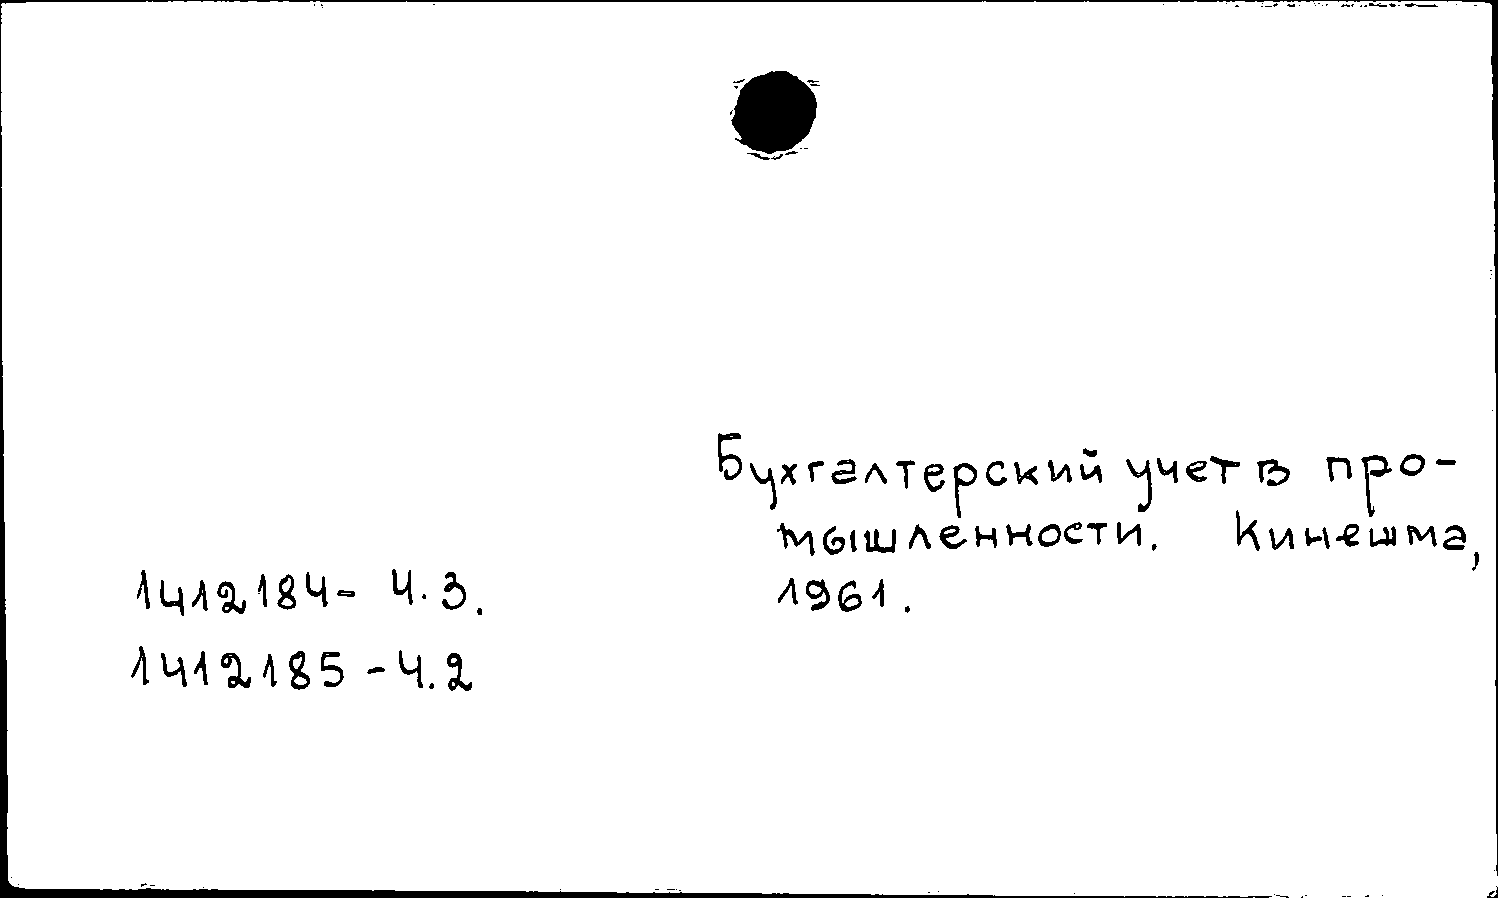 Бухгалтерский учет в про-
мышленности. Кинешма,
1961.
1412184- Ч.3.
1412185-Ч.2